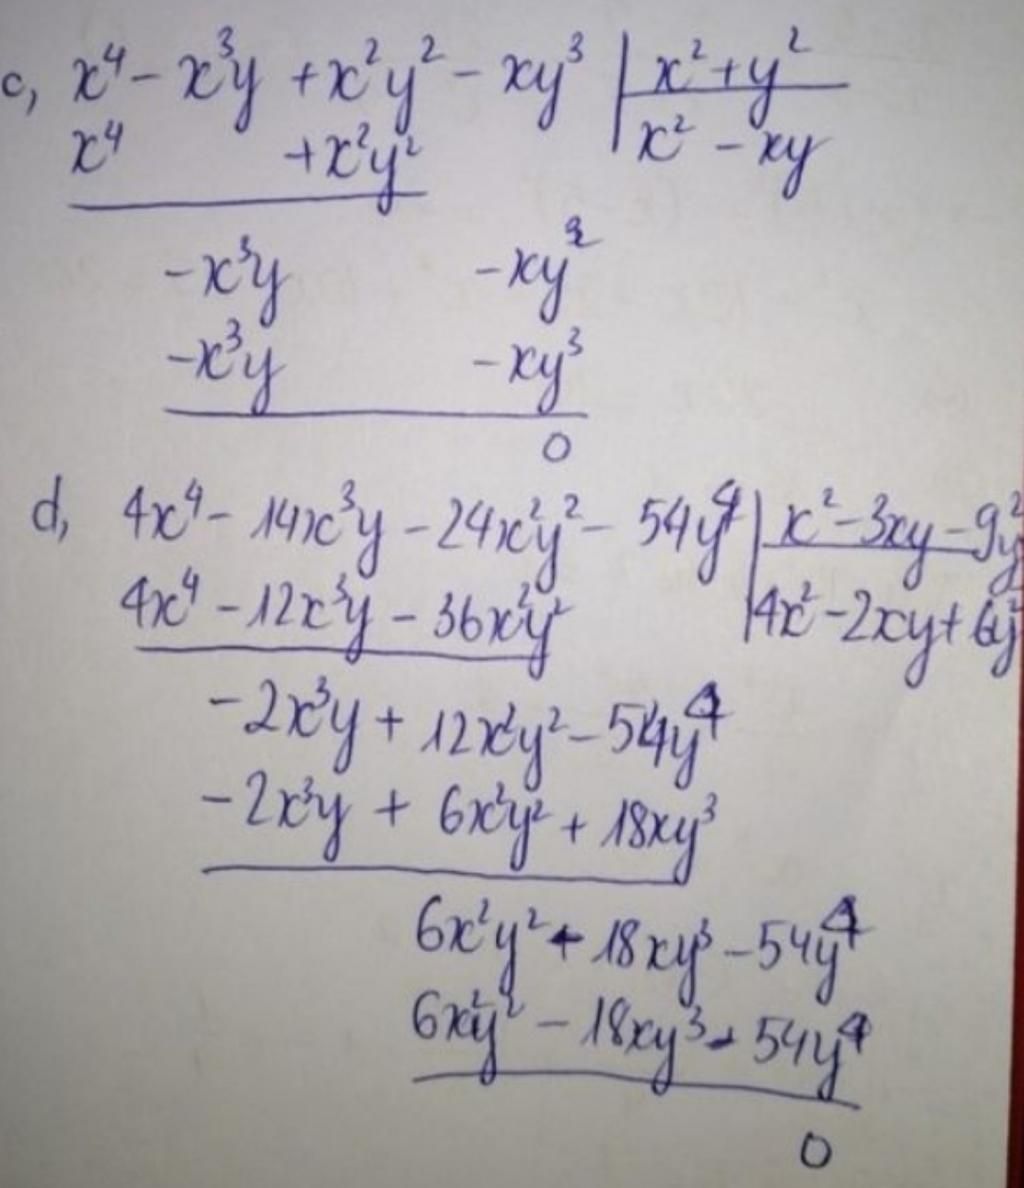 c, x⁴ - x³y + x²y² - xy³ | x² + y²
x⁴ + x²y² | x² - xy
-x³y - xy³
-x³y - xy³
0
d, 4x⁴ - 14x³y - 24x²y² - 54y⁴ | x² - 3xy - 9y²
4x⁴ - 12x³y - 36x²y² | 4x² - 2xy + 6y²
-2x³y + 12x²y² - 54y⁴
-2x³y + 6x²y² + 18xy³
6x²y² + 18xy³ - 54y⁴
6x²y² - 18xy³ - 54y⁴
0